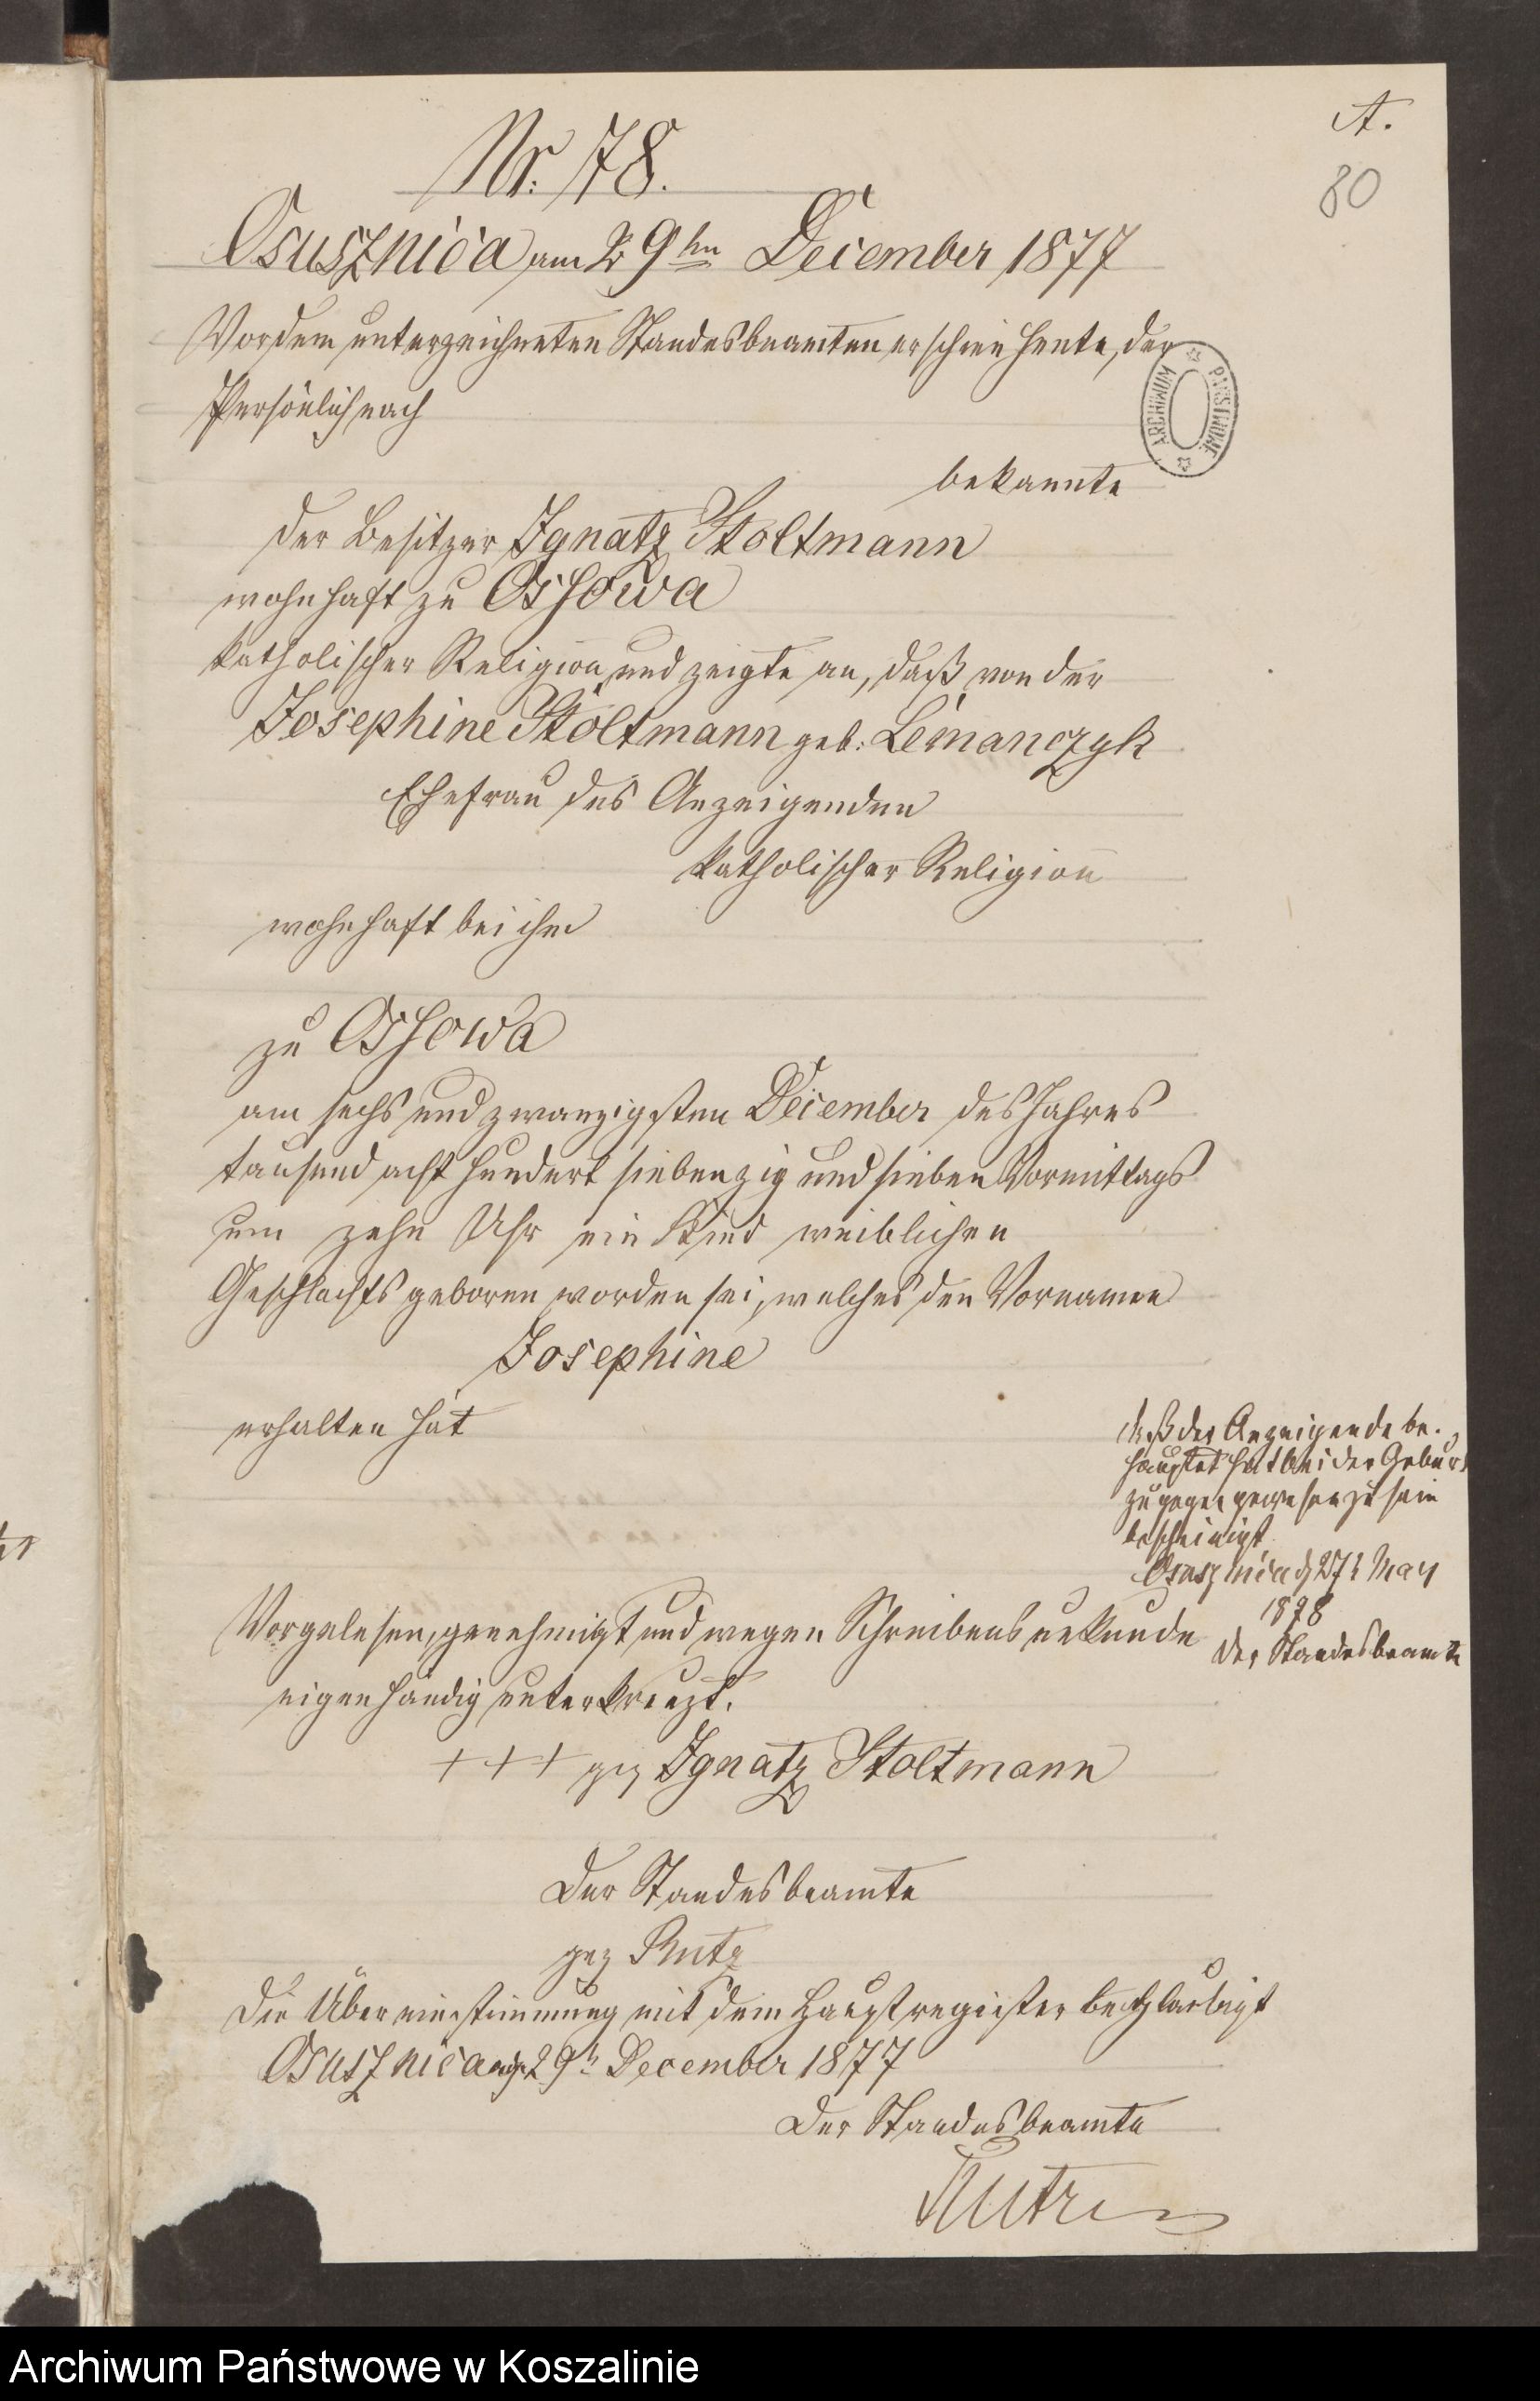 A.
80
Nr. 78.
Osusznica am 29ten December 1877
Vor dem unterzeichneten Standesbeamten erschien heute, der
Persönlich nach
bekannte
der Besitzer Ignatz Stoltmann
wohnhaft zu Ossowa
katholischer Religion und zeigte an, daß von der
Josephine Stoltmann geb: Lemanczyk
Ehefrau des Anzeigenden
katholischer Religion
wohnhaft bei ihm
zu Ossowa
am sechs und zwanzigsten December des Jahres
tausend acht hundert siebenzig und sieben Vormittags
um zehn Uhr ein Kind weiblichen
Geschlechts geboren worden sei, welches den Vornamen
Josephine
erhalten hat
daß der Anzeigende be-
hauptet hat bei der Geburt
zugegen gewesen zu sein
bescheinigt
Osusznica d 27t May
1878
Der Standesbeamte
Vorgelesen, genehmigt und wegen Schreibensunkunde
eigenhändig unterkreuzt.
+++ gez Ignatz Stoltmann
Der Standesbeamte
gez Rutz
Die Übereinstimmung mit dem Hauptregister beglaubigt
Osusznica 29t December 1877
Der Standesbeamte
ARCHIWUM PAŃSTWOWE
Archiwum Państwowe w Koszalinie